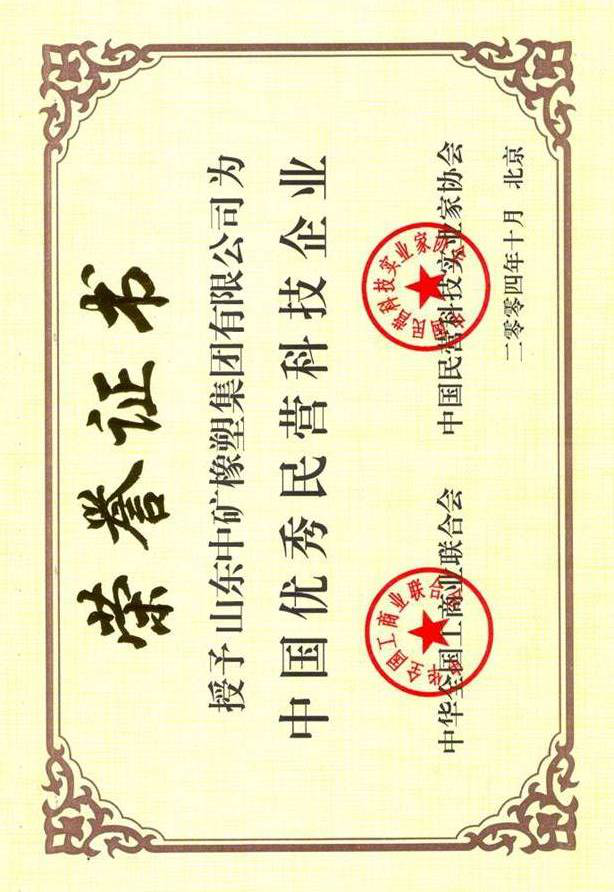 荣誉证书
授予山东中矿橡塑集团有限公司为
中国优秀民营科技企业
中华全国工商业联合会
中国民营科技实业家协会
二零零四年十月 北京
中华全国工商业联合会
中国民营科技实业家协会